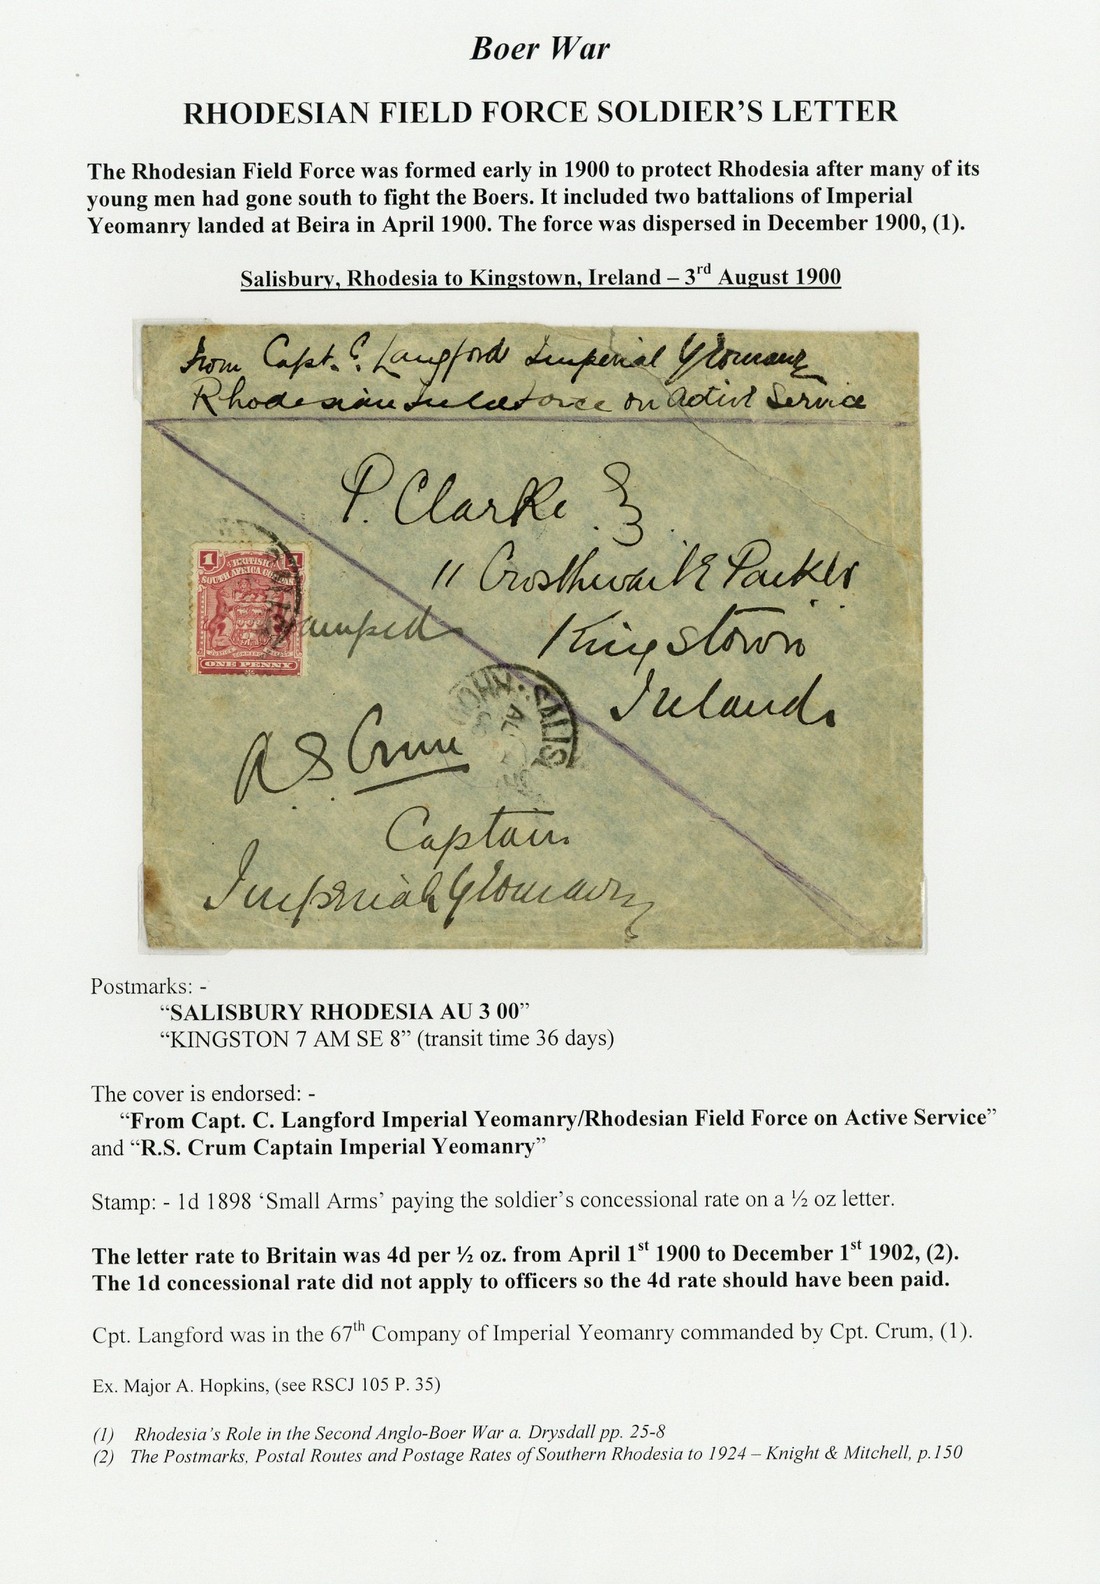 Boer War
RHODESIAN FIELD FORCE SOLDIER'S LETTER
The Rhodesian Field Force was formed early in 1900 to protect Rhodesia after many of its
young men had gone south to fight the Boers. It included two battalions of Imperial
Yeomanry landed at Beira in April 1900. The force was dispersed in December 1900, (1).
Salisbury, Rhodesia to Kingstown, Ireland – 3rd August 1900
From Capt. C. Langford Imperial Yeomanry
Rhodesian Field Force on Active Service
P. Clarke
11 Crosthwaite Park
Kingstown
Ireland
1 1
BRITISH
SOUTH AFRICA COMPANY
ONE PENNY
SALIS
AU
R S Crum
Captain
Imperial Yeomanry
Postmarks: -
“SALISBURY RHODESIA AU 3 00”
“KINGSTON 7 AM SE 8” (transit time 36 days)
The cover is endorsed: -
“From Capt. C. Langford Imperial Yeomanry/Rhodesian Field Force on Active Service”
and “R.S. Crum Captain Imperial Yeomanry”
Stamp: - 1d 1898 ‘Small Arms’ paying the soldier’s concessional rate on a ½ oz letter.
The letter rate to Britain was 4d per ½ oz. from April 1st 1900 to December 1st 1902, (2).
The 1d concessional rate did not apply to officers so the 4d rate should have been paid.
Cpt. Langford was in the 67th Company of Imperial Yeomanry commanded by Cpt. Crum, (1).
Ex. Major A. Hopkins, (see RSCJ 105 P. 35)
(1) Rhodesia’s Role in the Second Anglo-Boer War a. Drysdall pp. 25-8
(2) The Postmarks, Postal Routes and Postage Rates of Southern Rhodesia to 1924 – Knight & Mitchell, p.150